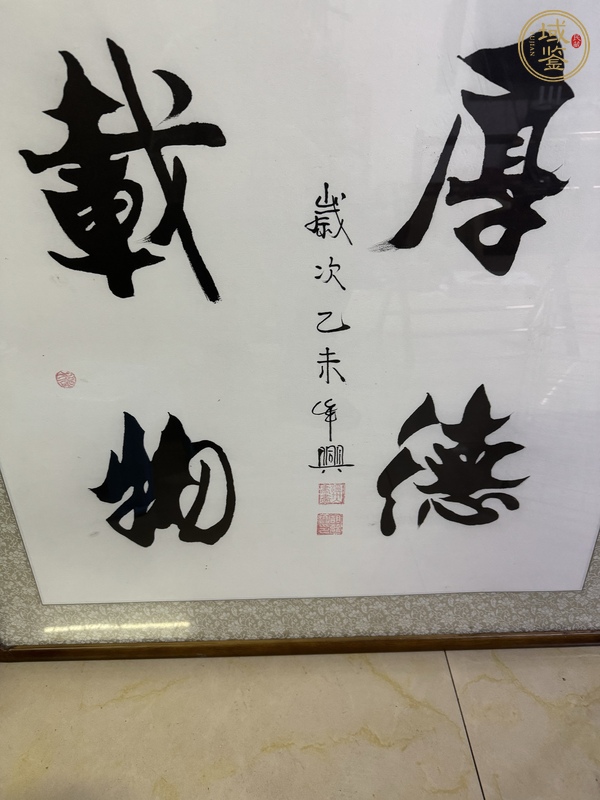 厚德
載物
歲次乙未年興
域鉴